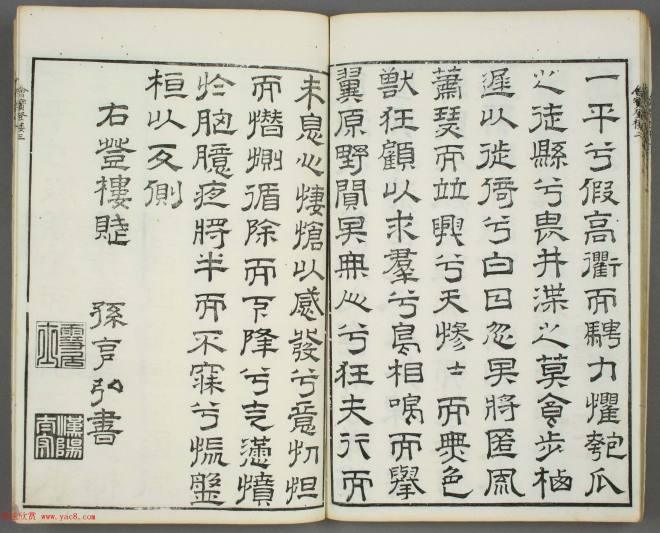 一平兮假高衢而騁力懼匏瓜
之徒縣兮畏井渫之莫食步棲
遲以徙倚兮白日忽其將匿風
蕭瑟而並興兮天慘〻而無色
獸狂顧以求羣兮鳥相鳴而舉
翼原野闃其無人兮征夫行而
未息心悽愴以感發兮意忉怛
而憯惻循除而下降兮气憤
於胸臆夜將半而不寐兮悵盤
桓以反側
右登樓賦
孫書
漢陽
登樓三
www.yac8.com